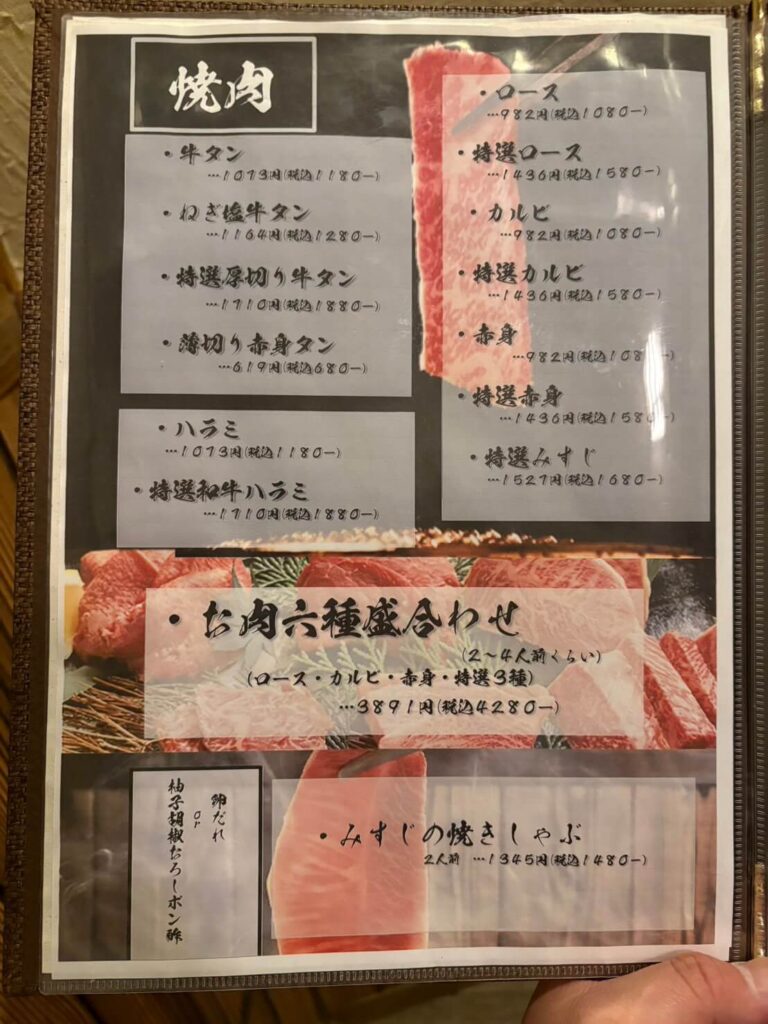 焼肉
・牛タン
…1073円(税込1180-)
・ねぎ塩牛タン
…1164円(税込1280-)
・特選厚切り牛タン
…1710円(税込1880-)
・薄切り赤身タン
…619円(税込680-)
・ハラミ
…1073円(税込1180-)
・特選和牛ハラミ
…1710円(税込1880-)
・ロース
…982円(税込1080-)
・特選ロース
…1436円(税込1580-)
・カルビ
…982円(税込1080-)
・特選カルビ
…1436円(税込1580-)
・赤身
…982円(税込1080-)
・特選赤身
…1436円(税込1580-)
・特選みすじ
…1527円(税込1680-)
・お肉六種盛合わせ
(2～4人前くらい)
(ロース・カルビ・赤身・特選3種)
…3891円(税込4280-)
卵だれ
or
柚子胡椒おろしポン酢
・みすじの焼きしゃぶ
2人前 …1345円(税込1480-)